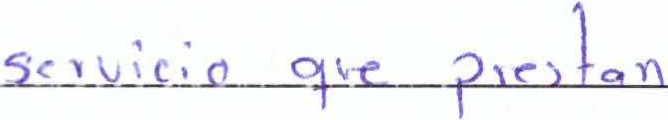 servicio que prestan